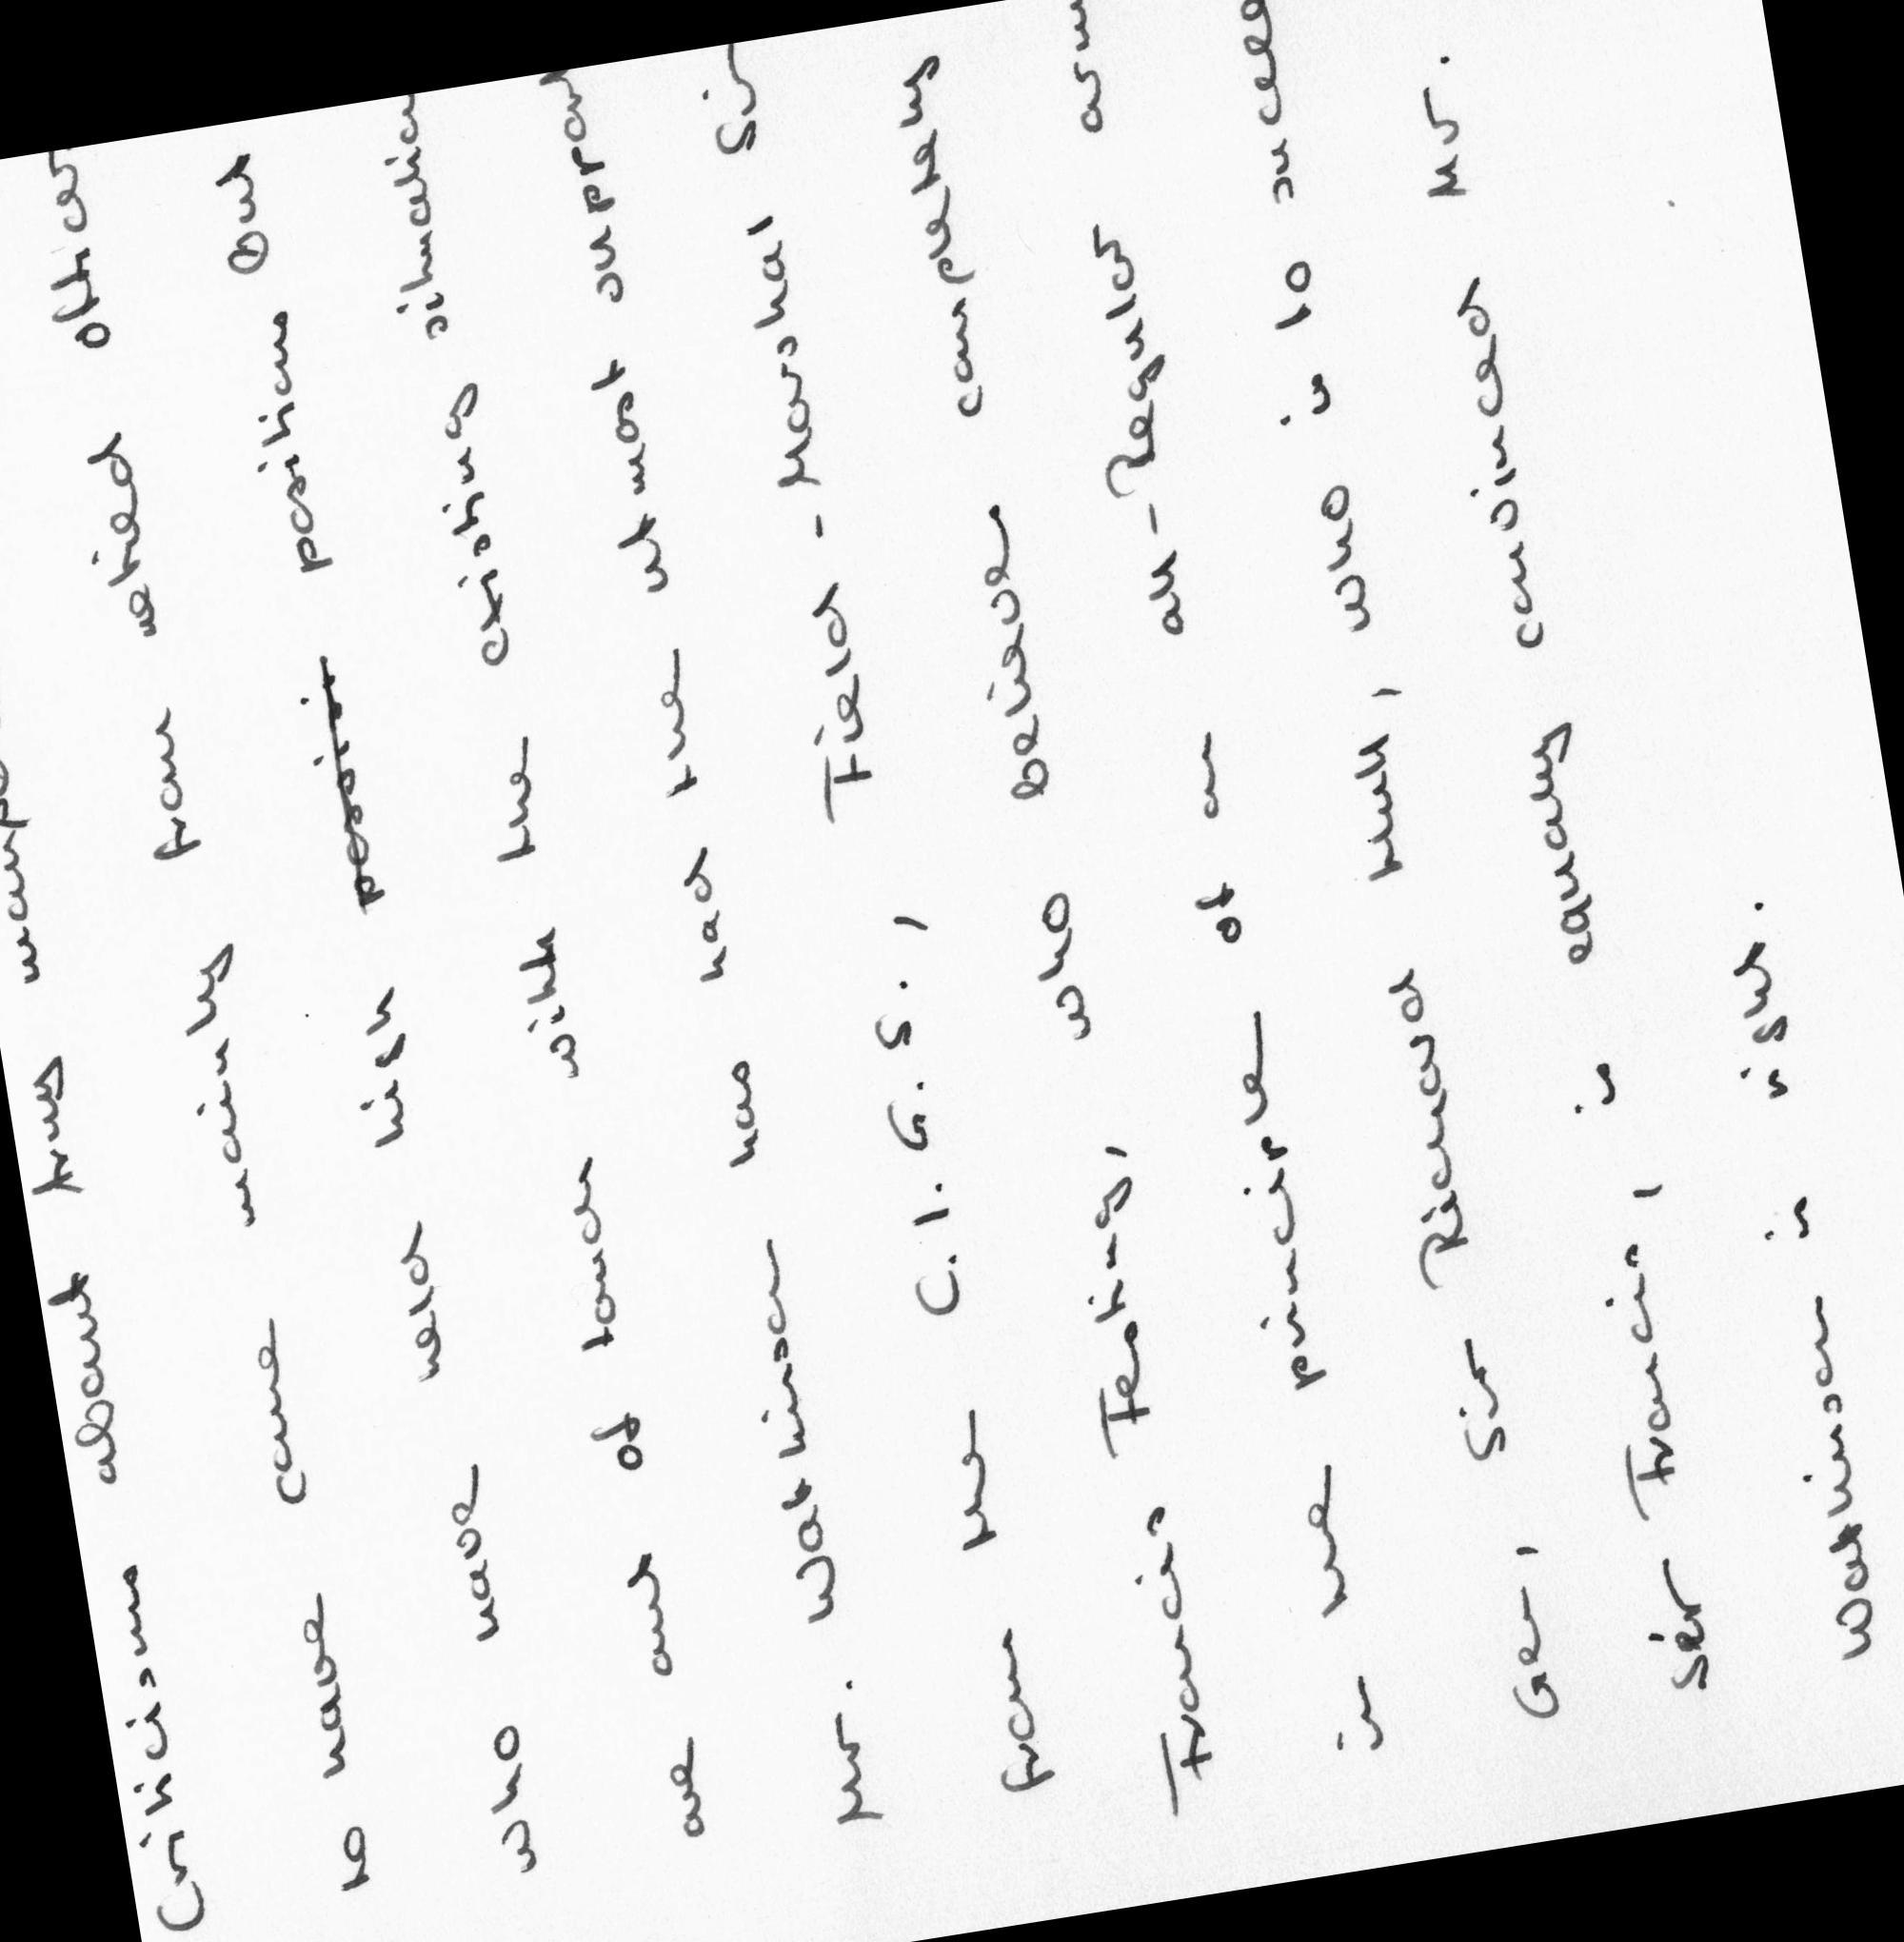 Criticisms about Army
to have come mainly from retired officer
who have held high positions But
are out of touch with the existing situation
Mr. Watkinson has had the utmost support
from the C.I.G.S., Field-Marshal Sir
Francis Festing, who believes completely
in the principle of an all-Regular arm
Gen, Sir Richard Hull, who is to succee
Sir Francis, is equally convinced Mr.
Watkinson is right.